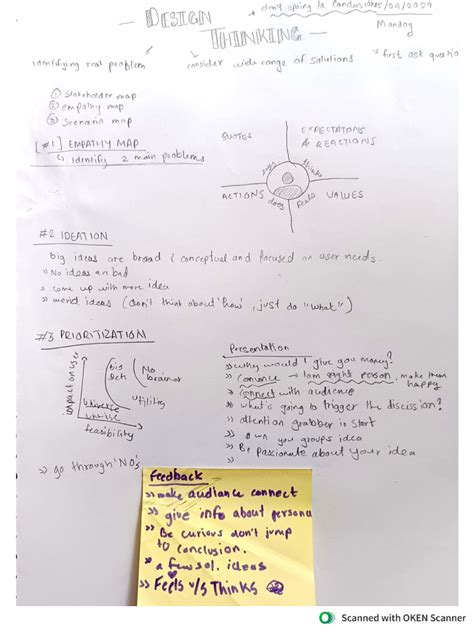 DESIGN
THINKING
* don't spring to conclusions
/04/2024
Monday
identifying real problem
consider wide range of solutions
* first ask questio
① Stakeholder map
② empathy map
③ Scenario map
[#1] EMPATHY MAP
identify 2 main problems
QUOTES
EXPECTATIONS
& REACTIONS
says
thinks
does
feels
ACTIONS
VALUES
#2 IDEATION
Big ideas are broad & conceptual and focused on user needs.
» No ideas are bad
» come up with more idea
» weird ideas (don't think about 'how', just do "what")
#3 PRIORITIZATION
impact on user
big
bets
No
brainer
Utilities
Unwise
feasibility
» go through 'NO's
Presentation
» Why would I give you money?
» Convince → I am right person, make them
happy
» connect with audience
» what is going to trigger the discission?
» attention grabber is start
» own you groups idea
» Be passionate about your idea
Feedback
»» make audiance connect
»» give info about persona
»» Be curious don't jump
to conclusion.
» a few sol. ideas
»» Feels v/s Thinks
Scanned with OKEN Scanner